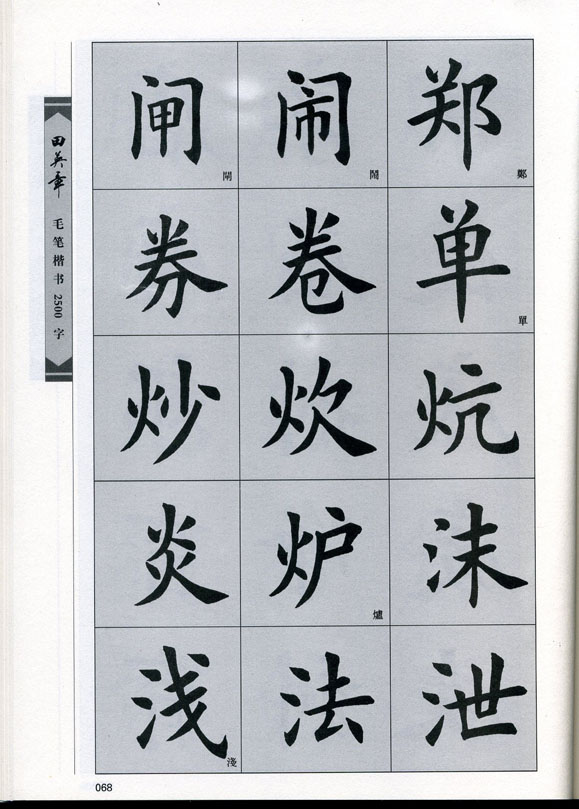 田英章
毛笔楷书 2500 字
闸 闹 郑
閘 鬧 鄭
券 卷 单
單
炒 炊 炕
炎 炉 沫
爐
浅 法 泄
淺
068